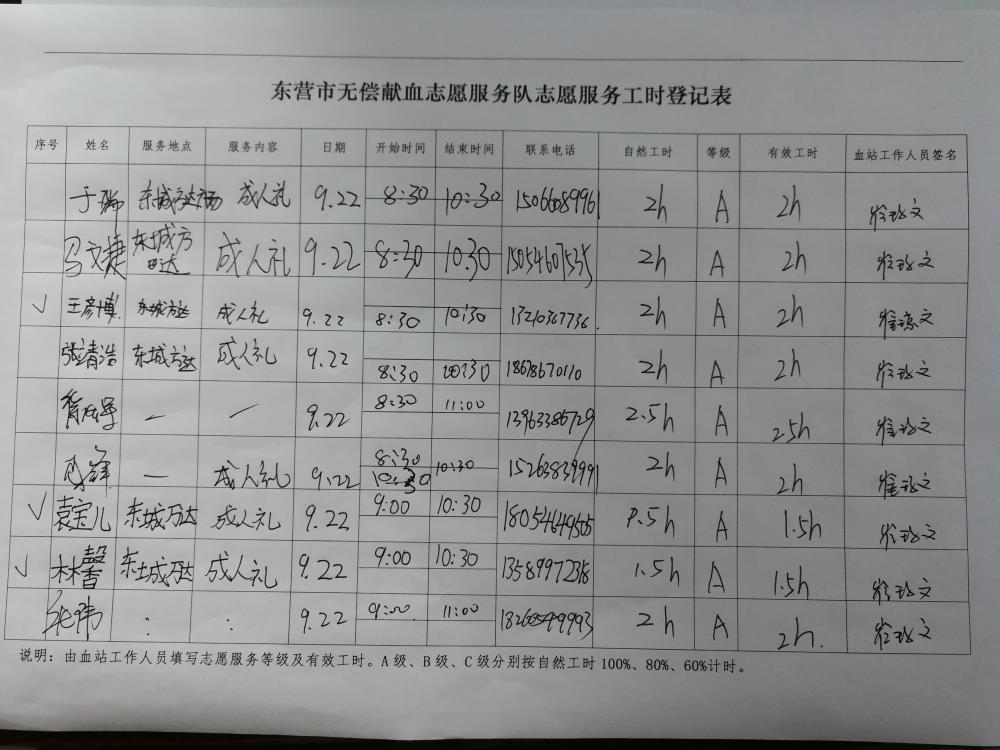 东营市无偿献血志愿服务队志愿服务工时登记表
序号 姓名 服务地点 服务内容 日期 开始时间 结束时间 联系电话 自然工时 等级 有效工时 血站工作人员签名
于瑞 东城万达广场 成人礼 9.22 8:30 10:30 15066089961 2h A 2h
马文捷 东城万达 成人礼 9.22 8:30 10.30 15054607535 2h A 2h
✓ 王彦博 东城万达 成人礼 9.22 8:30 10:30 13210367736 2h A 2h
张清浩 东城万达 成人礼 9.22 8:30 10:30 18678670110 2h A 2h
— — 9.22 8:30 11:00 13963386729 2.5h A 2.5h
— 成人礼 9.22 8:30 10:30 10:30 15263839991 2h A 2h
✓ 袁宝儿 东城万达 成人礼 9.22 9:00 10:30 18054649505 1.5h A 1.5h
✓ 林馨 东城万达 成人礼 9.22 9:00 10:30 13589972318 1.5h A 1.5h
张伟 : : 9.22 9:00 11:00 2h A 2h.
说明：由血站工作人员填写志愿服务等级及有效工时。A级、B级、C级分别按自然工时100%、80%、60%计时。